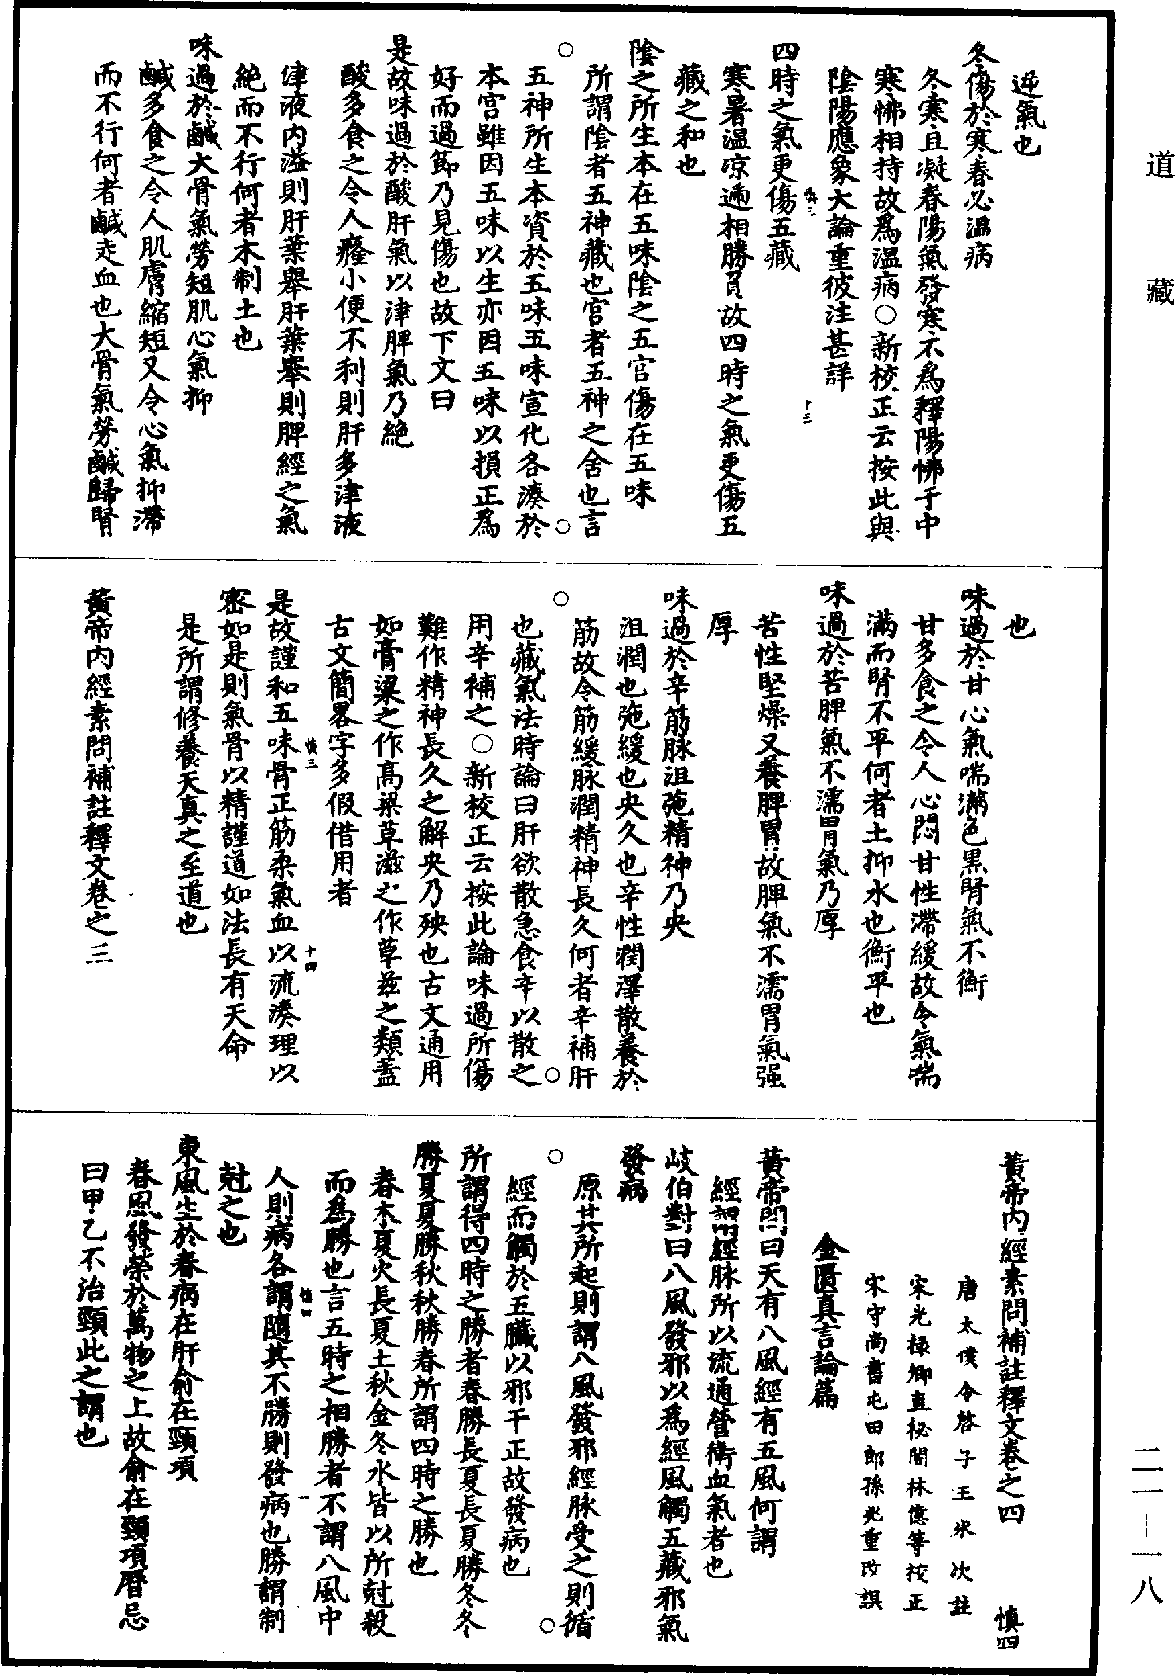 道藏
逆氣也
冬傷於寒春必溫病
冬寒且凝春陽氣發寒不爲釋陽怫于中
寒怫相持故爲溫病○新校正云按此與
陰陽應象大論重彼注甚詳
四時之氣更傷五藏
寒暑溫凉遞相勝負故四時之氣更傷五
藏之和也
陰之所生本在五味陰之五官傷在五味
所謂陰者五神藏也官者五神之舍也言
五神所生本資於五味五味宣化各湊於
本宮雖因五味以生亦因五味以損正爲
好而過節乃見傷也故下文曰
是故味過於酸肝氣以津脾氣乃絶
酸多食之令人癃小便不利則肝多津液
津液內溢則肝葉舉肝葉舉則脾經之氣
絶而不行何者木制土也
味過於鹹大骨氣勞短肌心氣抑
鹹多食之令人肌膚縮短又令心氣抑滯
而不行何者鹹走血也大骨氣勞鹹歸腎
也
味過於甘心氣喘滿色黑腎氣不衡
甘多食之令人心悶甘性滯緩故令氣喘
滿而腎不平何者土抑水也衡平也
味過於苦脾氣不濡胃氣乃厚
苦性堅燥又養脾胃故脾氣不濡胃氣强
厚
味過於辛筋脉沮弛精神乃央
沮潤也弛緩也央久也辛性潤澤散養於
筋故令筋緩脉潤精神長久何者辛補肝
也藏氣法時論曰肝欲散急食辛以散之
用辛補之○新校正云按此論味過所傷
難作精神長久之解央乃殃也古文通用
如膏粱之作高梁草滋之作草兹之類蓋
古文簡畧字多假借用者
是故謹和五味骨正筋柔氣血以流湊理以
密如是則氣骨以精謹道如法長有天命
是所謂修養天真之至道也
黃帝內經素問補註釋文卷之三
黃帝內經素問補註釋文卷之四 慎四
唐太僕令啓子王氷次註
宋光祿卿直秘閣林億等校正
宋守尚書屯田郎孫兆重改誤
金匱真言論篇
黃帝問曰天有八風經有五風何謂
經謂經脉所以流通營衛血氣者也
岐伯對曰八風發邪以爲經風觸五藏邪氣
發病
原其所起則謂八風發邪經脉受之則循
經而觸於五臟以邪干正故發病也
所謂得四時之勝者春勝長夏長夏勝冬冬
勝夏夏勝秋秋勝春所謂四時之勝也
春木夏火長夏土秋金冬水皆以所尅殺
而爲勝也言五時之相勝者不謂八風中
人則病各謂隨其不勝則發病也勝謂制
尅之也
東風生於春病在肝俞在頸項
春風發榮於萬物之上故俞在頸項曆忌
曰甲乙不治頸此之謂也
二一—一八